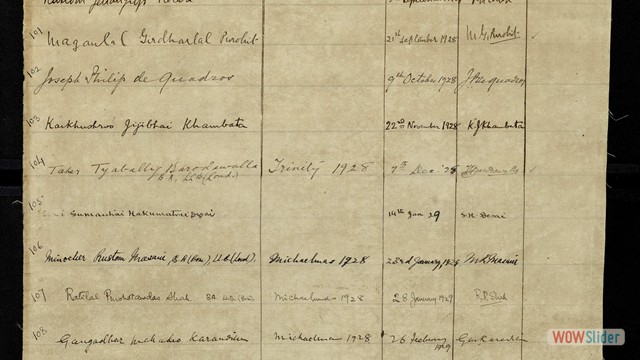 101 Maganlal Girdharlal Purohit 21st September 1928 M G Purohit
102 Joseph Philip de Quadros 9th October 1928 J P de Quadros
103 Kaikhushroo Jijibhai Khambata 22nd November 1928 K J Khambata
104 Taher Tyabally Barodawalla Trinity 1928 7th Dec '28
B.A, LL.B (Lond.)
105 Sumankai Hakumatrai Desai 14th Jan 29 S. H. Desai
106 Minocher Rustom Masani, B.A (Bom), LL.B (Lond). Michaelmas 1928 23rd January, 1929 M R Masani
107 Ratilal Purshotamdas Shah BA. LL.B. (Bom) Michaelmas 1928 28 January 1929 R. P. Shah
108 Gangadhar Mahadeo Michaelmas 1928 26
1929
WOWSlider